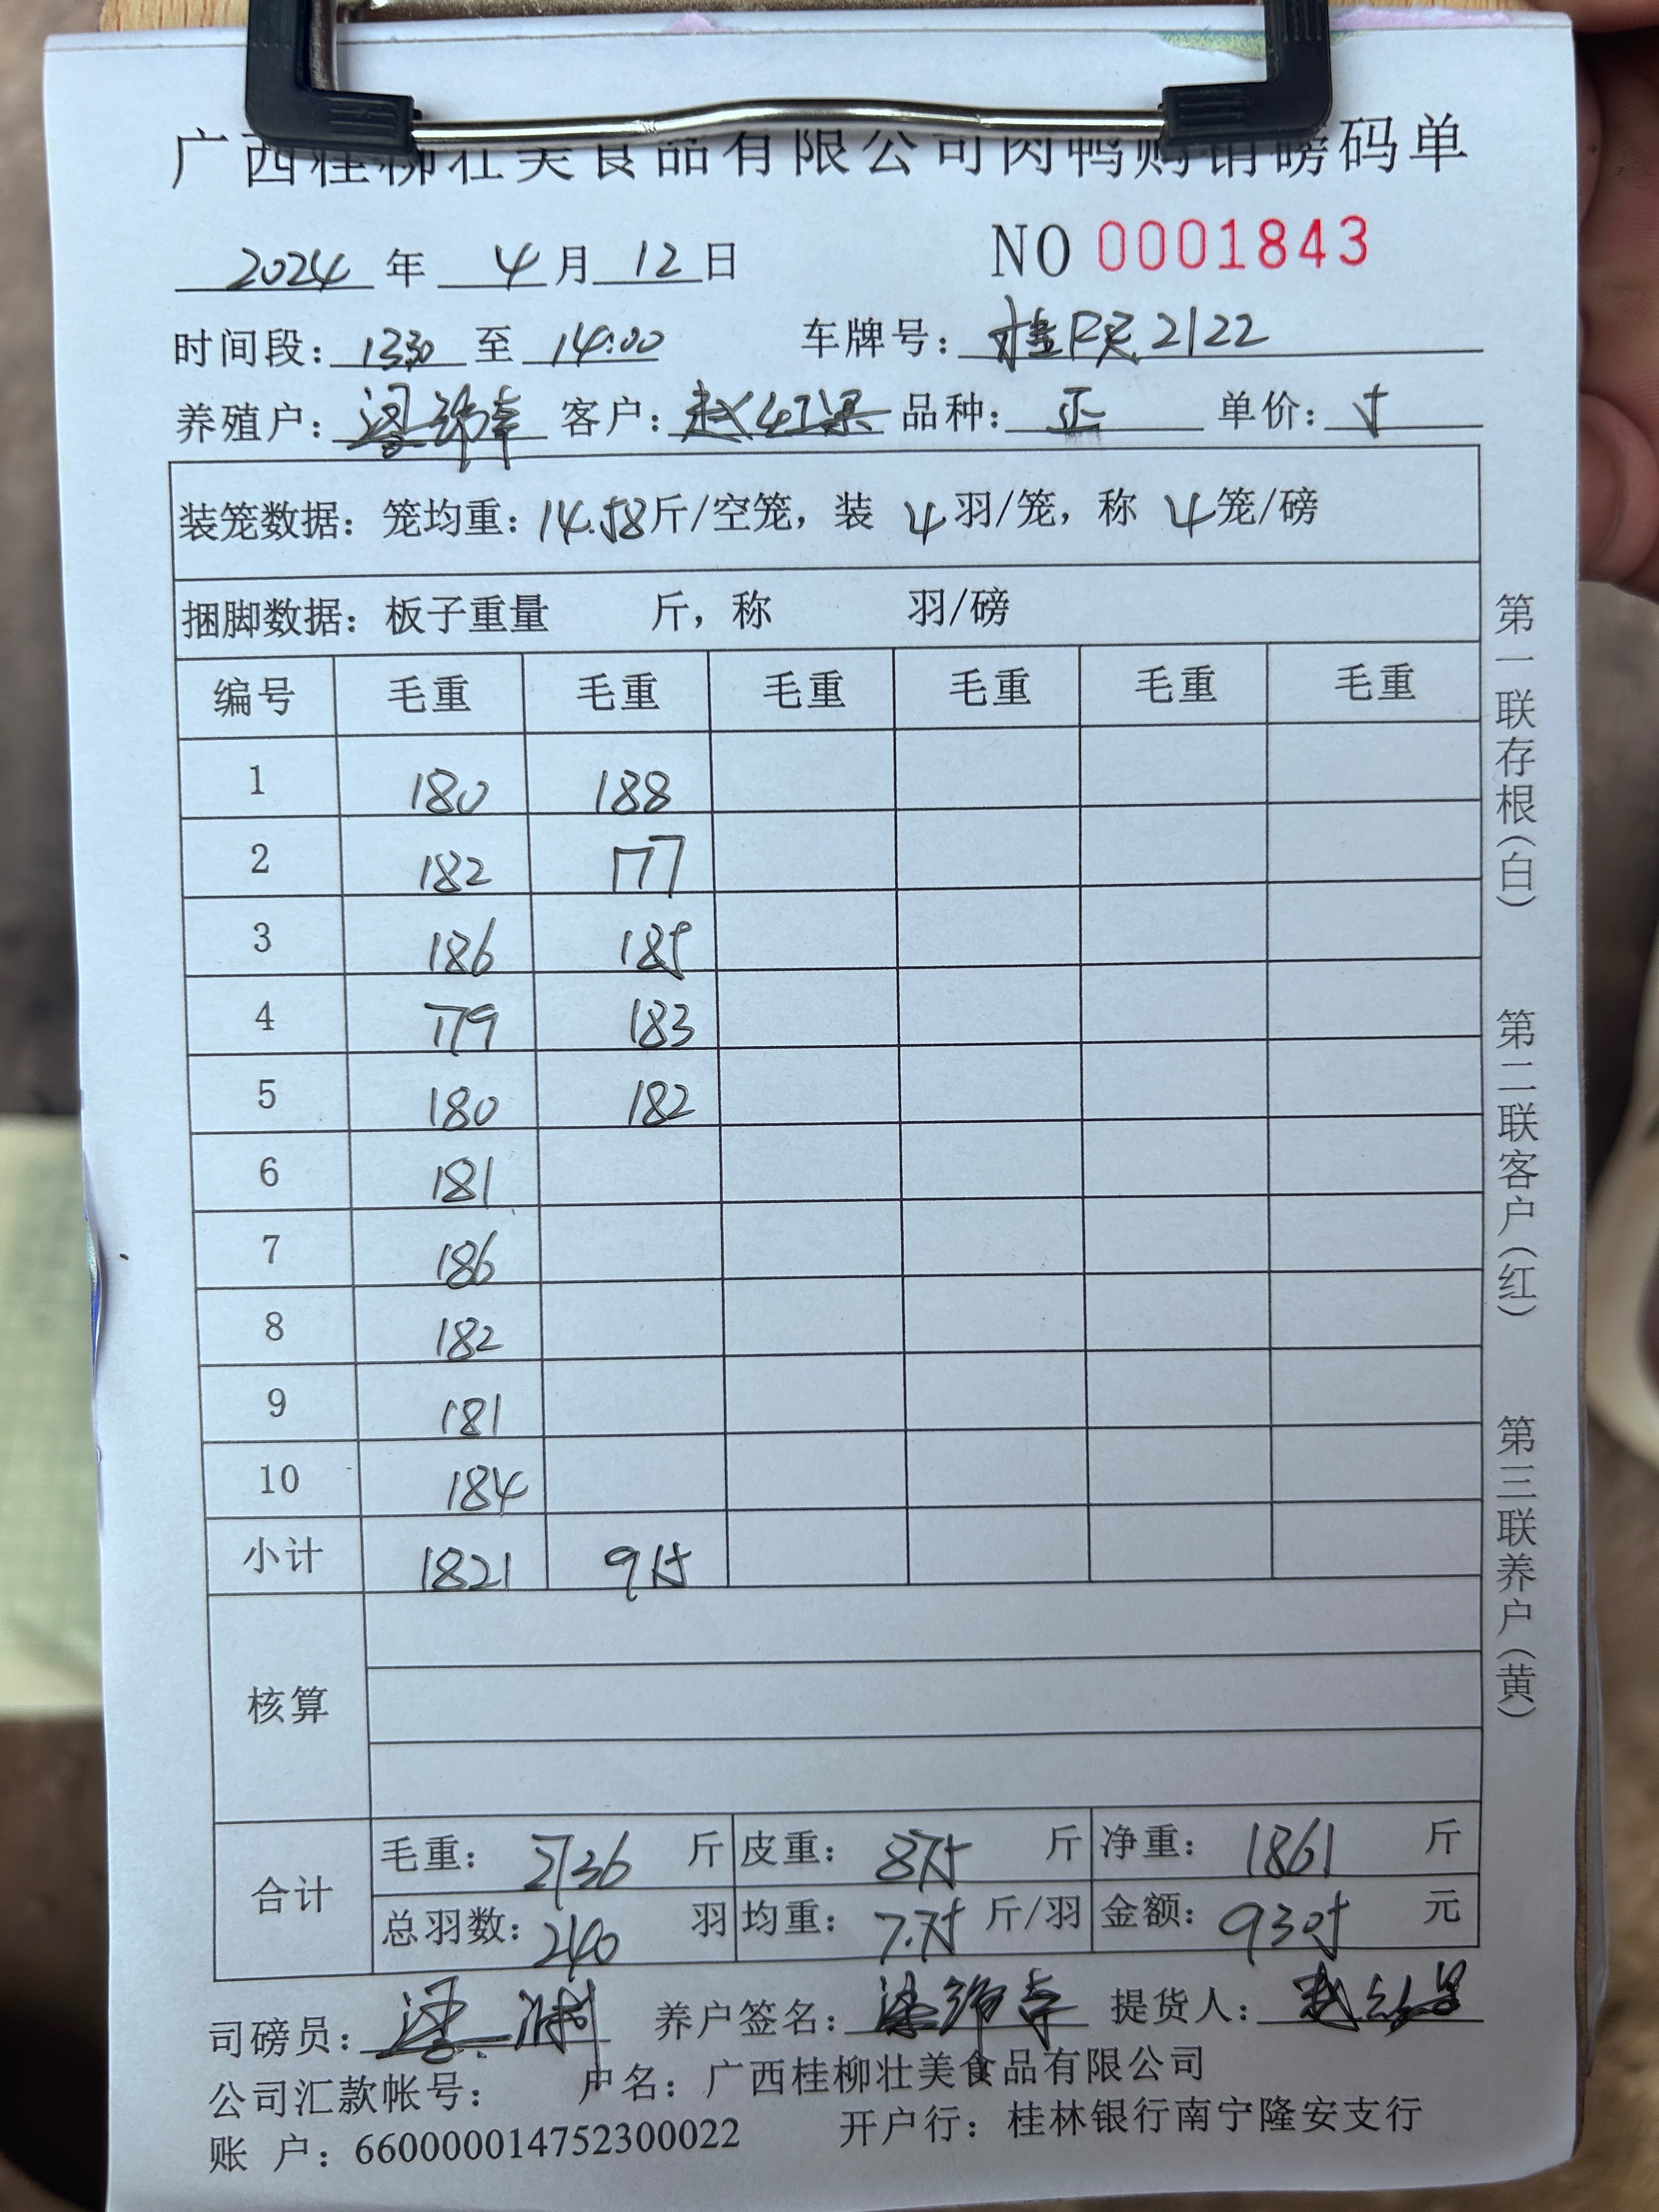 广西桂柳壮美食品有限公司肉鸭购销磅码单
2024 年 4 月 12 日 NO 0001843
时间段: 1330 至 14:00 车牌号: 2122
养殖户: 客户: 赵红梁 品种: 正 单价: 5
装笼数据: 笼均重: 14.58 斤/空笼, 装 4 羽/笼, 称 4 笼/磅
捆脚数据: 板子重量 斤, 称 羽/磅
编号 毛重 毛重 毛重 毛重 毛重 毛重
1 180 188
2 182 177
3 186 185
4 179 183
5 180 182
6 181
7 186
8 182
9 181
10 184
小计 1821 915
核算
合计
毛重: 2736 斤 皮重: 875 斤 净重: 1861 斤
总羽数: 240 羽 均重: 7.75 斤/羽 金额: 9305 元
司磅员: 养户签名: 提货人:
公司汇款帐号: 户名: 广西桂柳壮美食品有限公司
账 户: 660000014752300022 开户行: 桂林银行南宁隆安支行
第一联存根(白) 第二联客户(红) 第三联养户(黄)